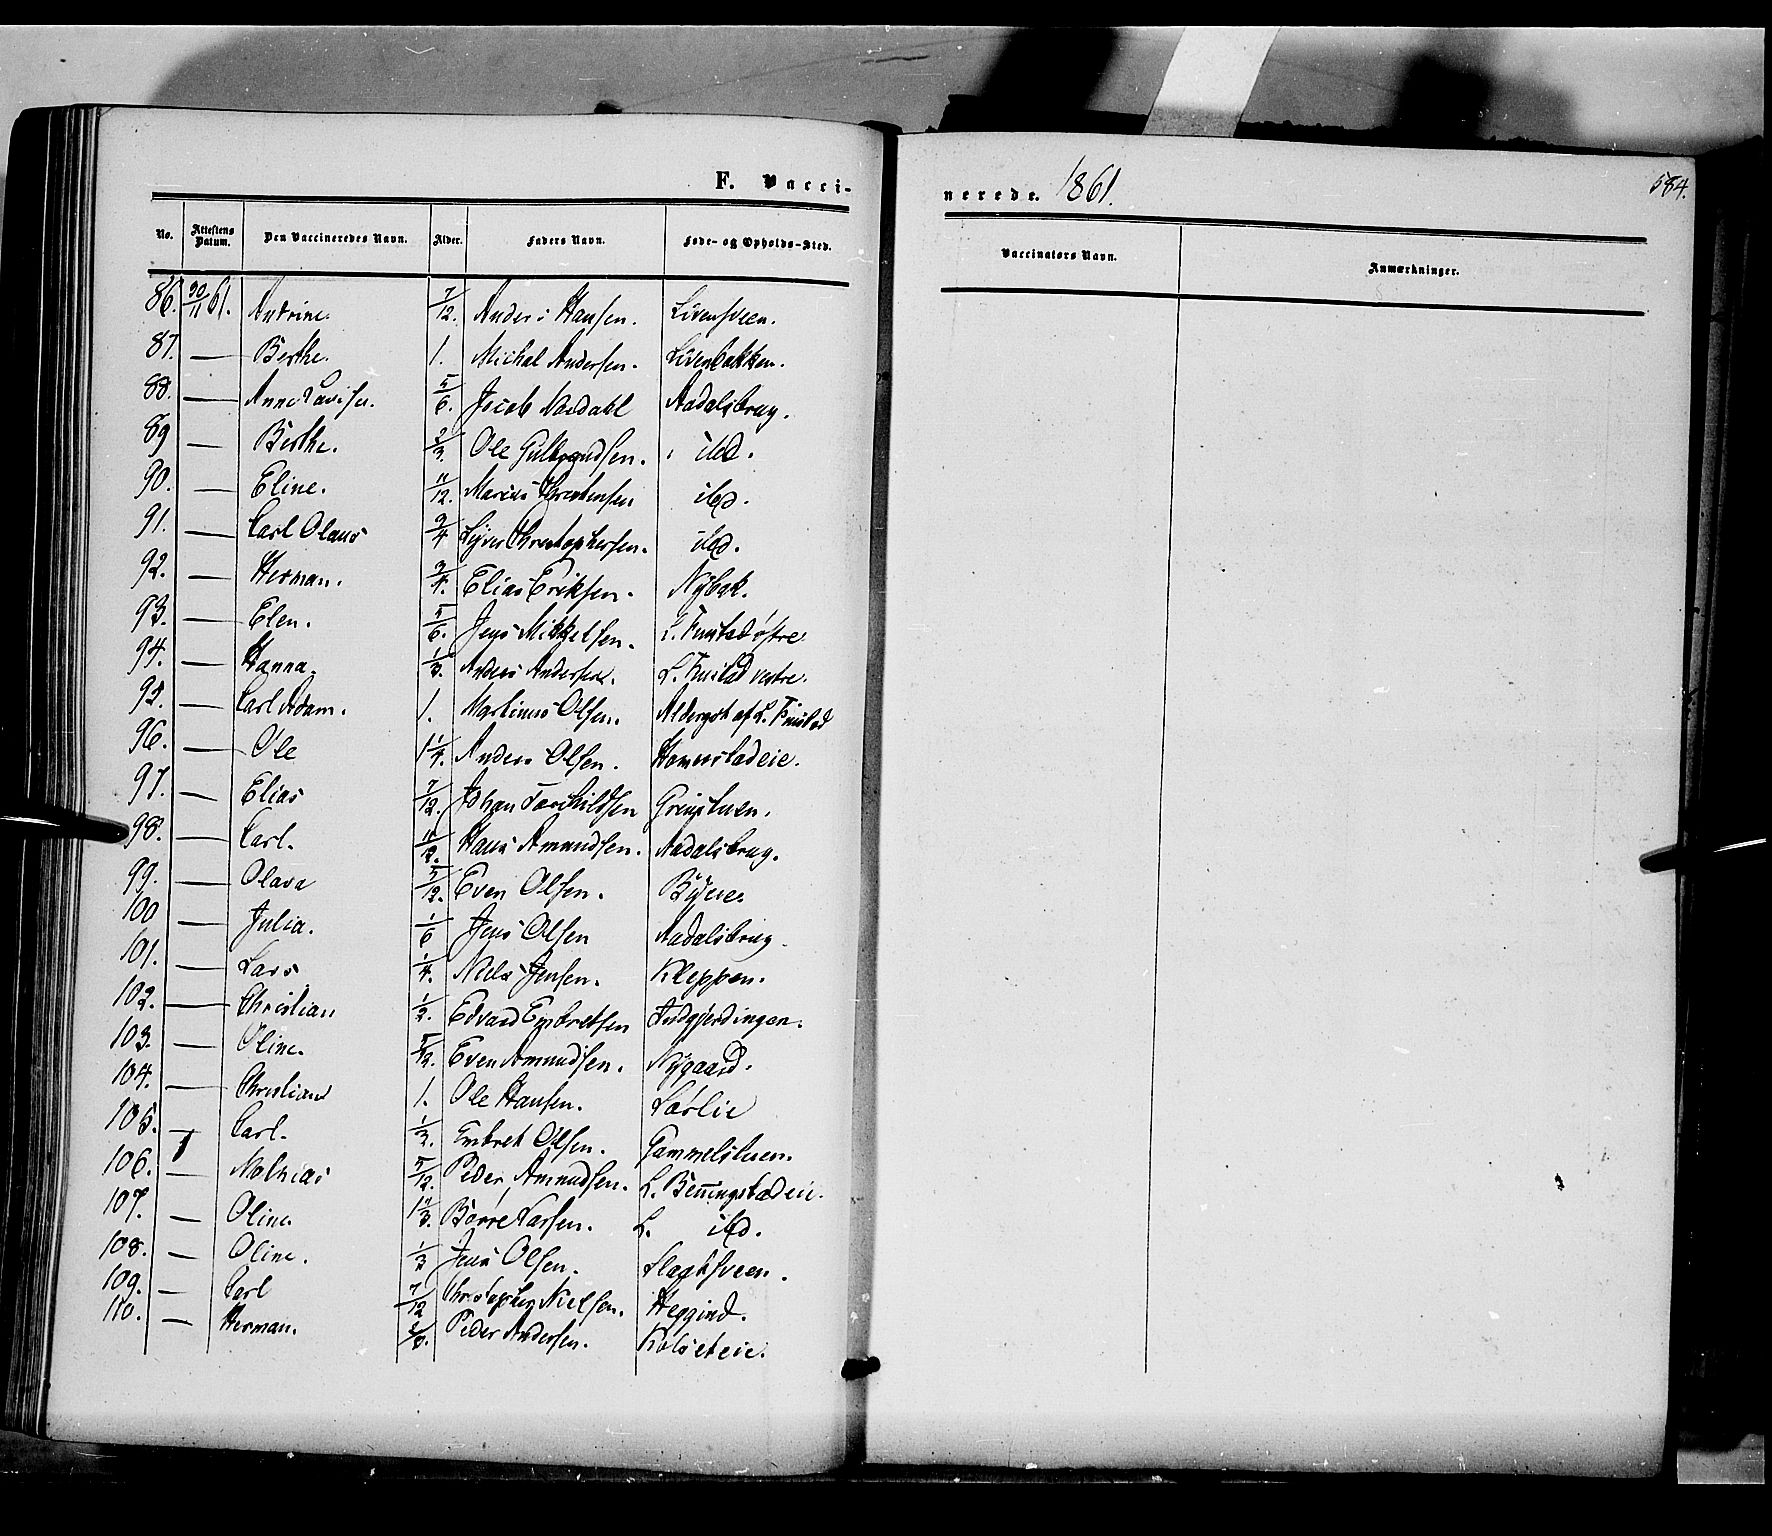 F. Vacci-
nerede. 1861.
584.
No. Attestens Datum. Den Vaccineredes Navn. Alder. Faders Navn. Føde- og Opholds-Sted.
Vaccinators Navn. Anmærkninger.
86. 30/11 61. Andrine. 7/12. Anders Hansen. Livensveen.
87. — Berthe. 1. Michal Andersen. Livenbakken.
88. — Anne 5/6. Jacob Nordahl Aadalsbrug.
89 — Berthe. 2/3. Ole Gulbrandsen. ibd.
90. — Eline. 11/12. Marius Christensen ibd.
91. — Carl Olaus 3/4 Syver Christophersen. ibd.
92. — Herman. 3/4. Elias Eriksen. Nybak.
93. — Elen. 5/6. Jens Mikkelsen. L. Finstad østre
94. — Hanna. 1/3. Anders Andersen. L. Finstad vestre.
95. — Carl Adam. 1. Martinus Olsen. af L. Finstad
96. — Ole 1 1/4. Anders Olsen. Homerstadeie.
97. — Elias 7/12. Johan Torchildsen Grinstuen.
98. — Carl. 11/12. Hans Amundsen. Aadalsbrug.
99. — Olava 5/12. Even Olsen.
100 — Julia. 1/6 Jens Olsen Aadalsbrug.
101. — Lars 1/4. Niels Jensen. Kleppen.
102. — Christian 1/2. Edvard Embretsen Indgjerdingen.
103. — Oline. 5/12. Even Amundsen. Nygaard.
104. — Christian 1. Ole Hansen. Sørlie
105. — Carl. 1/2. Embret Olsen. Gammelstuen.
106. — Mathias 5/12. Peder Amundsen. L. Benningstadeie.
107. — Oline 1 1/3. Børre Larsen. L. ibd.
108. — Oline. 1/3 Jens Olsen. Flagtsveen.
109. — Carl 7/12 Christopher Nielsen. Heggind.
110. — Herman. Peder Andersen. Kolseteie.